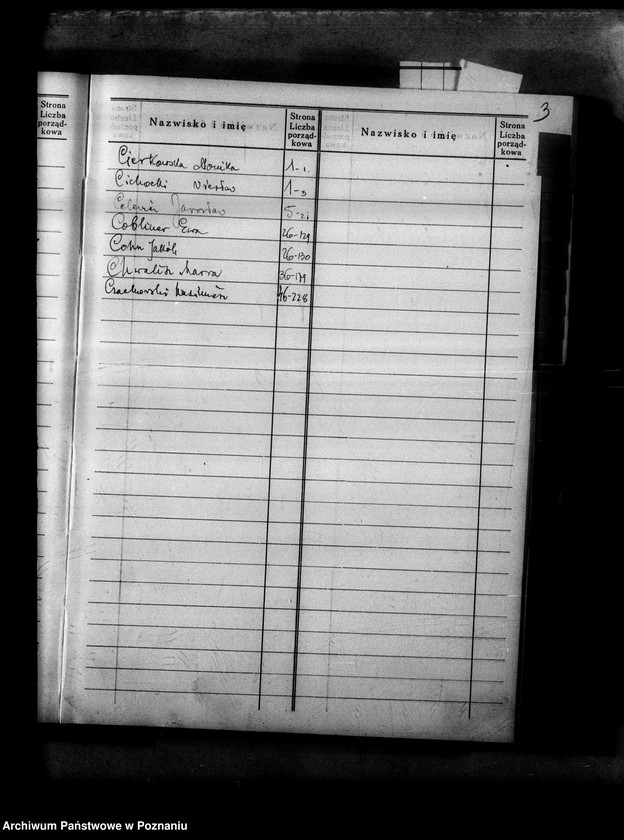 3
Strona
Liczba
porząd-
kowa
Nazwisko i imię
Strona
Liczba
porząd-
kowa
Nazwisko i imię
Strona
Liczba
porząd-
kowa
Cierkowska Monika 1-1.
Cichocki 1-3
Jarosław 5-21
Cobliner Ewa 26-129
Cohn Jakób 26-130
Chwalisz 36-179
Czachowski Kazimierz 46-228
Archiwum Państwowe w Poznaniu